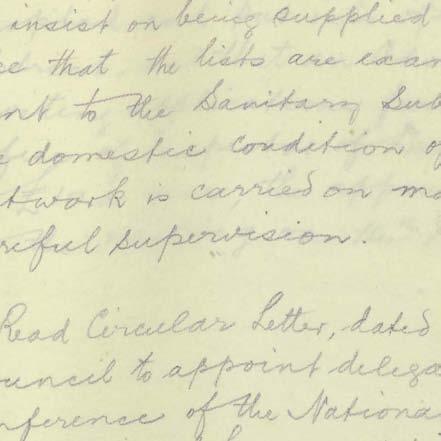 insist on being supplied
ce that the lists are exam
nt to the Sanitary Sub
e domestic condition of
twork is carried on mo
reful supervision.
Read Circular Letter, dated
ouncil to appoint delega
nference of the Nationa